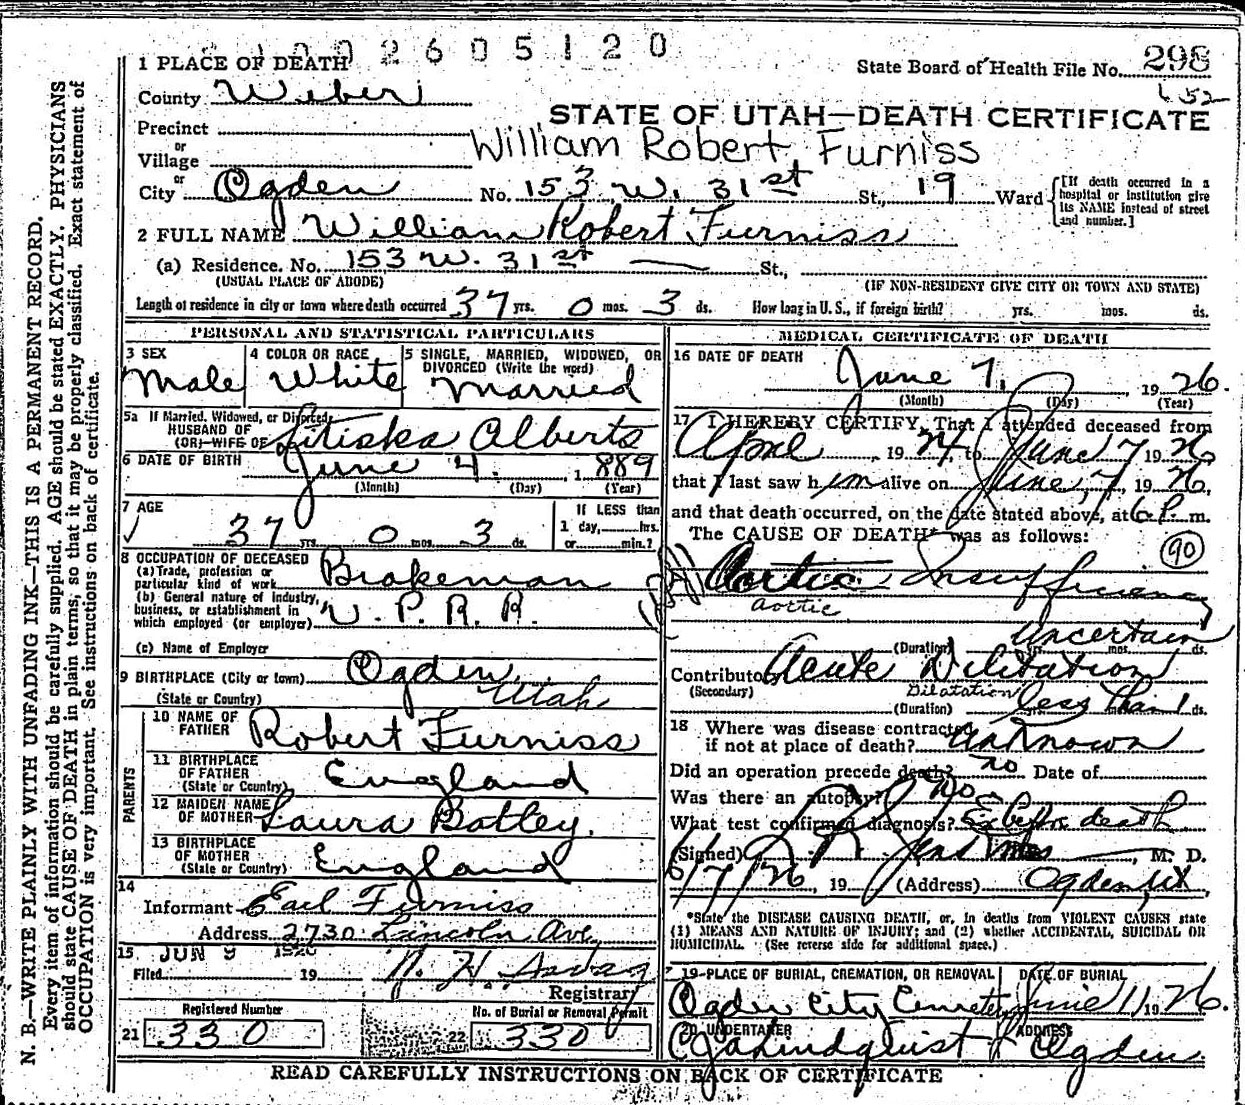 21002605120
1 PLACE OF DEATH
State Board of Health File No. 298
County Weber
652
STATE OF UTAH—DEATH CERTIFICATE
Precinct
or
William Robert Furniss
Village
or
City Ogden No. 153 W. 31st St., 19 Ward
[If death occurred in a hospital or institution give its NAME instead of street and number.]
2 FULL NAME William Robert Furniss
(a) Residence. No. 153 W. 31st St.,
(USUAL PLACE OF ABODE) (IF NON-RESIDENT GIVE CITY OR TOWN AND STATE)
Length of residence in city or town where death occurred 37 yrs. 0 mos. 3 ds. How long in U. S., if foreign birth? yrs. mos. ds.
PERSONAL AND STATISTICAL PARTICULARS
3 SEX Male
4 COLOR OR RACE White
5 SINGLE, MARRIED, WIDOWED, OR DIVORCED (Write the word)
Married
5a If Married, Widowed, or Divorced
HUSBAND OF
(OR) WIFE OF Alberts
6 DATE OF BIRTH June 4, 1889
(Month) (Day) (Year)
7 AGE 37 yrs. 0 mos. 3 ds.
If LESS than
1 day, hrs.
or min.?
8 OCCUPATION OF DECEASED
(a) Trade, profession or
particular kind of work Brakeman
(b) General nature of industry,
business, or establishment in
which employed (or employer) U. P. R. R.
(c) Name of Employer
9 BIRTHPLACE (City or town) Ogden
(State or Country) Utah
PARENTS
10 NAME OF
FATHER Robert Furniss
11 BIRTHPLACE
OF FATHER
(State or Country) England
12 MAIDEN NAME
OF MOTHER Laura Botley.
13 BIRTHPLACE
OF MOTHER
(State or Country) England
14
Informant Earl Furniss
Address 2730 Lincoln Ave.
15 JUN 9 1926
Filed 19
Registrar
Registered Number
21 330
No. of Burial or Removal Permit
22 330
MEDICAL CERTIFICATE OF DEATH
16 DATE OF DEATH
June 7, 1926.
(Month) (Day) (Year)
17 I HEREBY CERTIFY, That I attended deceased from
April, 1924, to June 7 1926,
that I last saw him alive on June, 7, 1926,
and that death occurred, on the date stated above, at 6 P. m.
The CAUSE OF DEATH* was as follows:
90
Aortic Insufficiency
aortic
uncertain
(Duration) yrs. mos. ds.
Contributory Acute Dilitation
(Secondary) Dilatation
(Duration) less than 1 ds.
18 Where was disease contracted
if not at place of death? unknown
Did an operation precede death? no Date of
Was there an autopsy? No
What test confirmed diagnosis? Ex before death
(Signed) M. D.
6/7/26, 19 (Address) Ogden, Ut
*State the DISEASE CAUSING DEATH, or, in deaths from VIOLENT CAUSES state
(1) MEANS AND NATURE OF INJURY; and (2) whether ACCIDENTAL, SUICIDAL OR
HOMICIDAL. (See reverse side for additional space.)
19—PLACE OF BURIAL, CREMATION, OR REMOVAL
Ogden City Cemetery
DATE OF BURIAL
June 11, 1926.
20 UNDERTAKER
Lindquist
ADDRESS
Ogden
READ CAREFULLY INSTRUCTIONS ON BACK OF CERTIFICATE
N. B.—WRITE PLAINLY WITH UNFADING INK—THIS IS A PERMANENT RECORD.
Every item of information should be carefully supplied. AGE should be stated EXACTLY. PHYSICIANS
should state CAUSE OF DEATH in plain terms, so that it may be properly classified. Exact statement of
OCCUPATION is very important. See instructions on back of certificate.